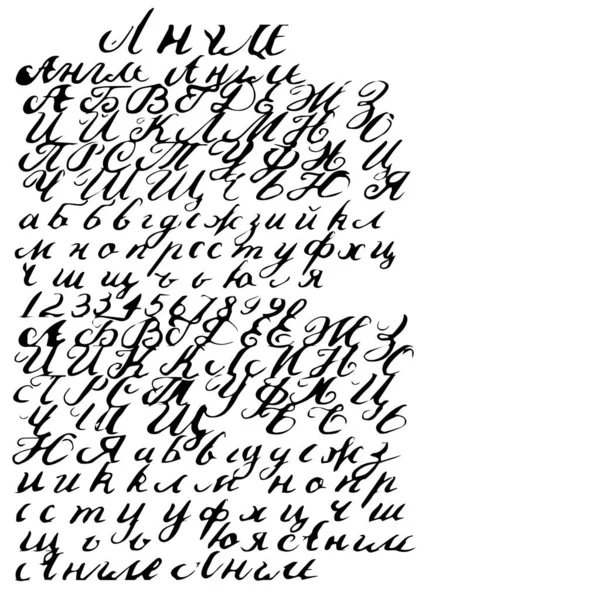 Англе
Англе Англе
А Б В Г Д Е Ж З
И Й К Л М Н О
П Р С Т У Ф Х Ц
Ч Ш Щ Ъ Ь Ю Я
а б б в г д е ж з и й к л
м н о п р с с т у ф х ц
ч ш щ ъ ь ю л я
1 2 3 3 4 5 6 7 8 9 9 0
А Б В Г Д Е Е Ж З
И Й К К Л М Н О
П Р С Т У Ф Х Ц
Ч Ш Щ Ъ Ь
Ю Я а б в г д у е ж з
и й к к л м н о п р
с с т у у ф х ц ч ш
щ ъ ь ю я Англе
Англе Англе